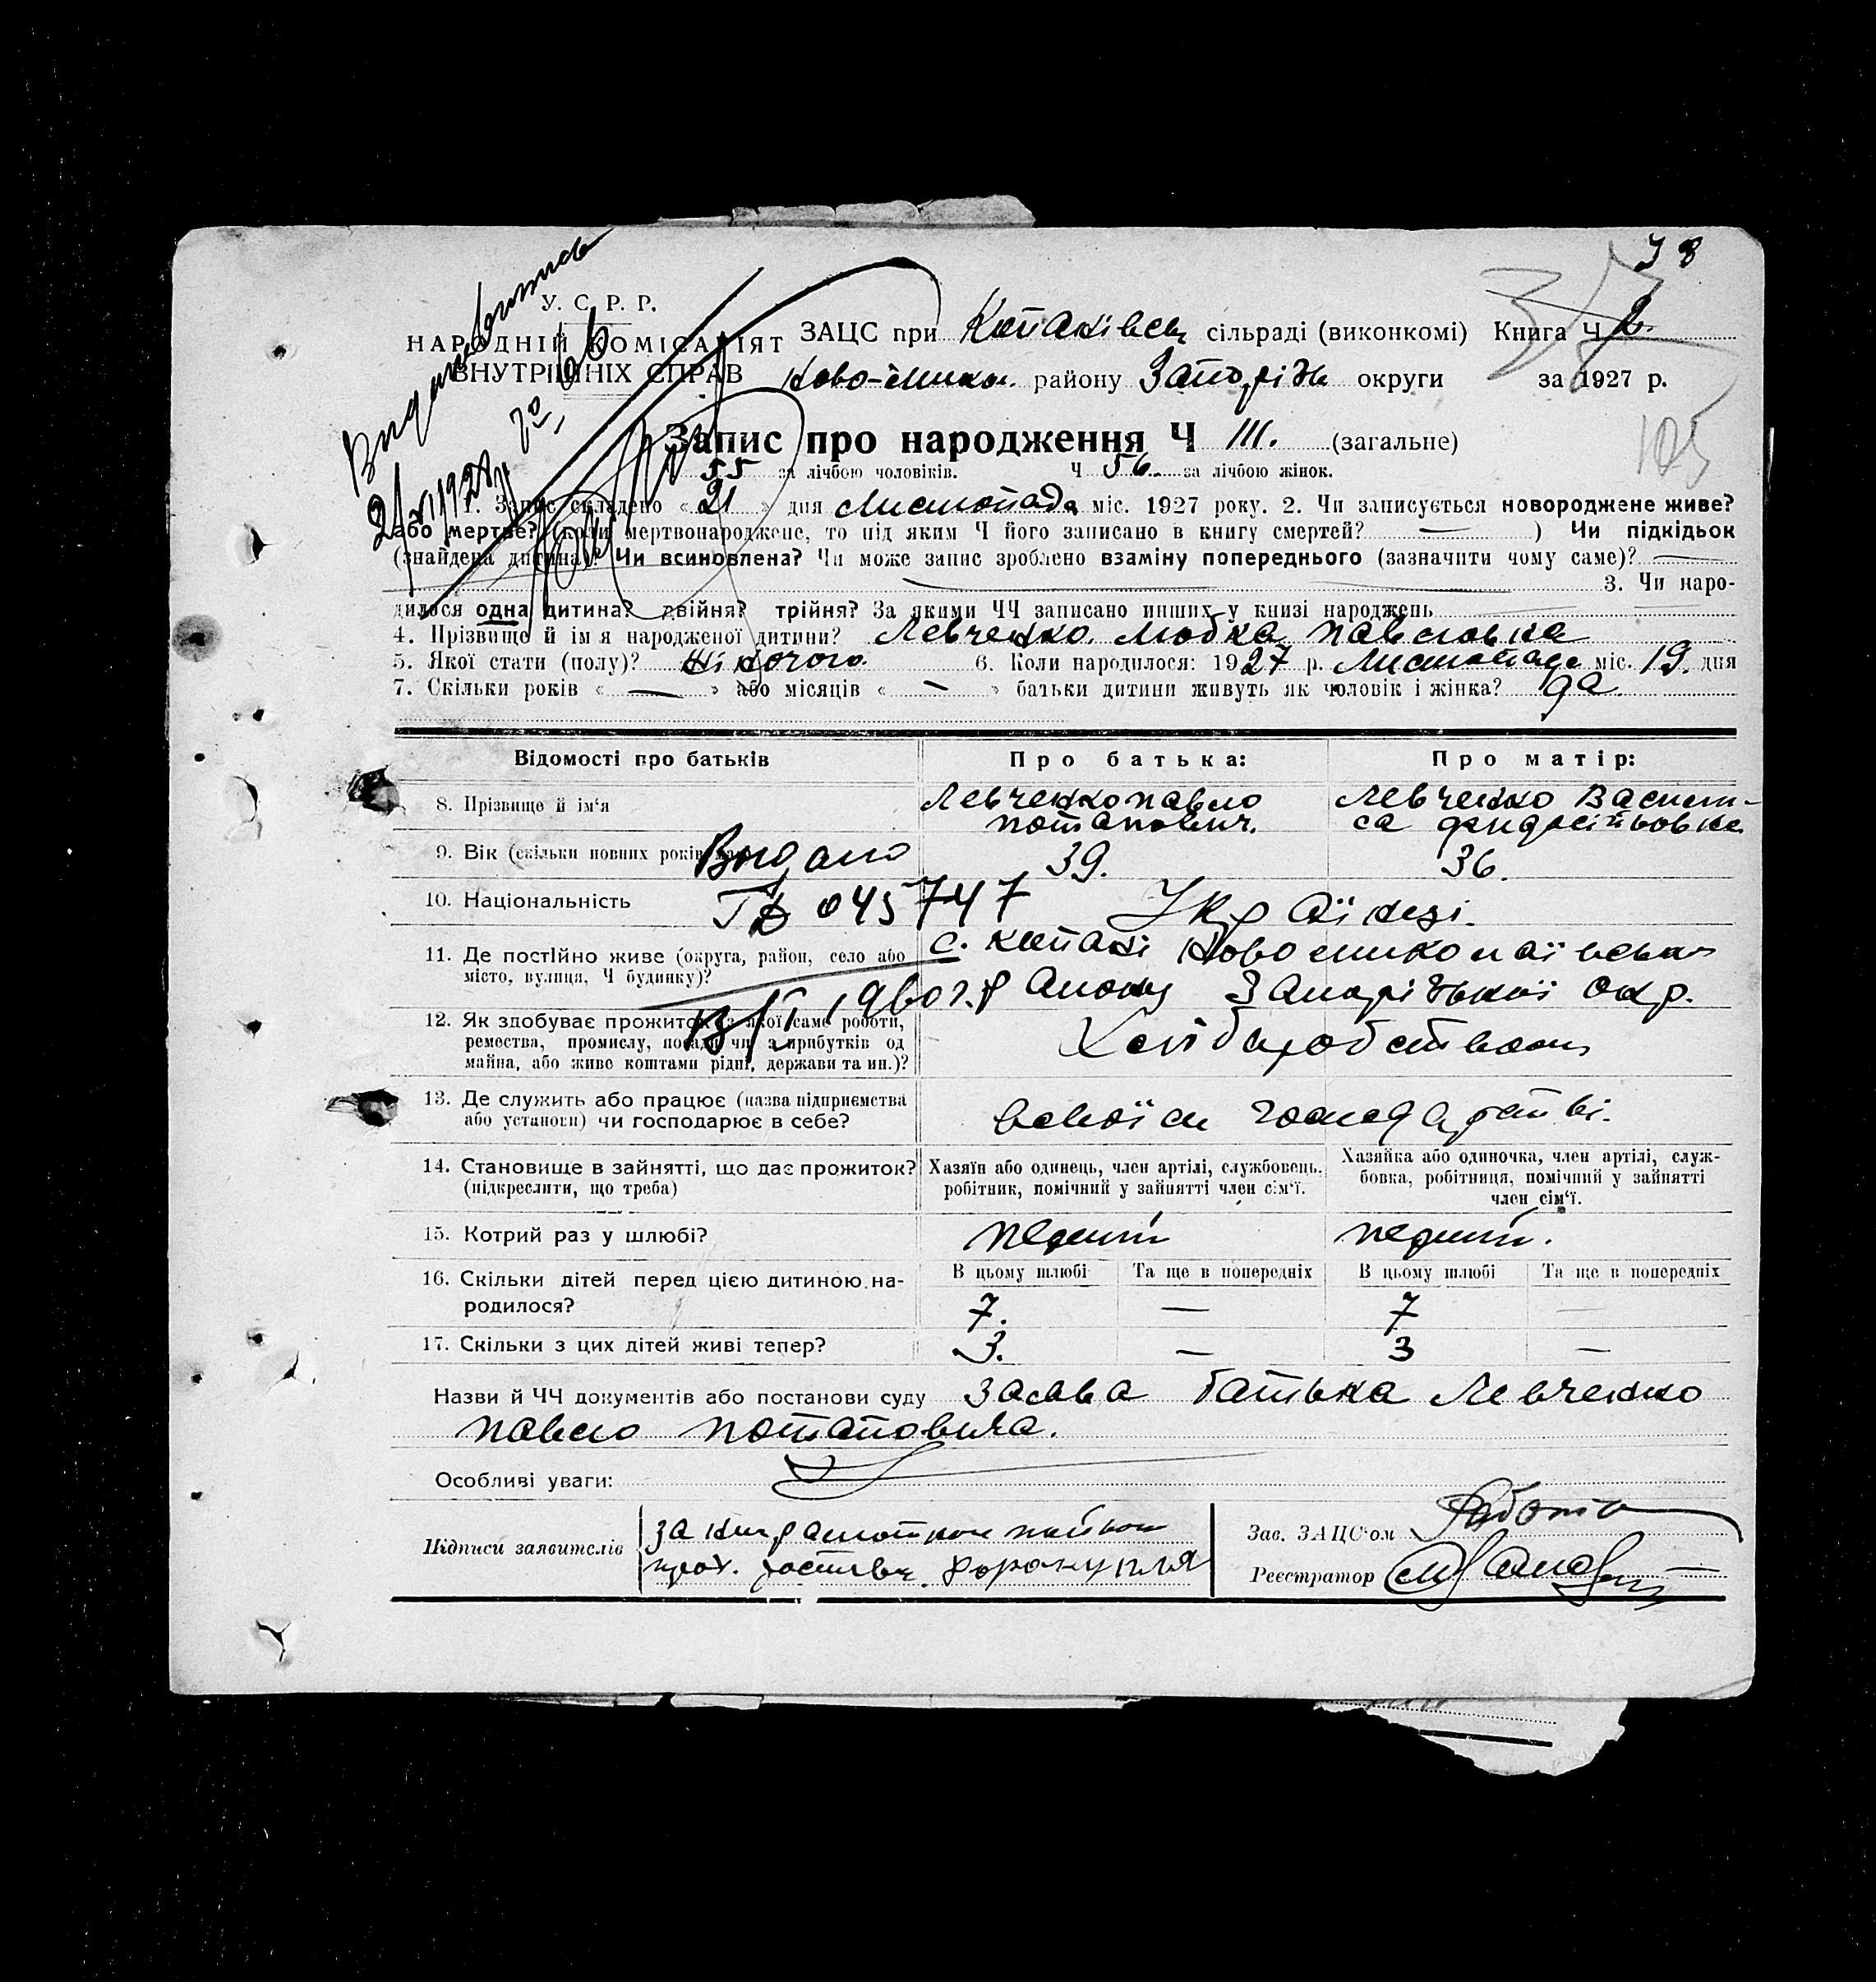 38
У. С. Р. Р.
НАРОДНІЙ КОМІСАРІЯТ
ВНУТРІШНІХ СПРАВ
ЗАЦС при сільраді (виконкомі) Книга Ч 2
Ново-Микол. району Запоріж округи за 1927 р.
105
Запис про народження Ч 111. (загальне)
55 за лічбою чоловіків. Ч 56 за лічбою жінок.
1. Запис складено « 21 » дня Листопада міс. 1927 року. 2. Чи записується новороджене живе?
або мертве? (коли мертвонароджене, то під яким Ч його записано в книгу смертей? — ) Чи підкідьок
(знайдена дитина)? Чи всиновлена? Чи може запис зроблено взаміну попереднього (зазначити чому саме)? —
3. Чи наро-
дилося одна дитина? двійня? трійня? За якими ЧЧ записано инших у книзі народжень
4. Прізвище й ім я народженої дитини? Левченко Любка Павловна
5. Якої стати (полу)? Жіночого. 6. Коли народилося: 1927 р. Листопада міс. 19. дня
7. Скільки років « — » або місяців « — » батьки дитини живуть як чоловік і жінка? да
Відомості про батьків Про батька: Про матір:
8. Прізвище й ім‘я Левченко Павло Левченко Васили-
Потапович. са Андрейовна
9. Вік (скільки повних років 39. 36.
Видано
10. Національність Українці.
045747
11. Де постійно живе (округа, район, село або с. Копані Новомиколаївськ
місто, вулиця, Ч будинку)? району Запоріжської Окр.
1960 г.
12. Як здобуває прожиток (з якої саме роботи, Хліборобством
ремества, промислу, посади чи з прибутків од
майна, або живе коштами рідні, держави та ин.)?
13. Де служить або працює (назва підприємства
або установи) чи господарює в себе? господарстві.
14. Становище в зайнятті, що дає прожиток? Хазяїн або одинець, член артілі, службовець, Хазяйка або одиночка, член артілі, служ-
(підкреслити, що треба) робітник, помічний у зайнятті член сім‘ї. бовка, робітниця, помічний у зайнятті
член сім‘ї.
15. Котрий раз у шлюбі? перший перший.
16. Скільки дітей перед цією дитиною на- В цьому шлюбі Та ще в попередніх В цьому шлюбі Та ще в попередніх
родилося? 7. — 7 —
17. Скільки з цих дітей живі тепер? 3. — 3 —
Назви й ЧЧ документів або постанови суду Заява батька Левченко
Павло Потаповича.
Особливі уваги:
Підписи заявителів
Зав. ЗАЦС‘ом
Реєстратор